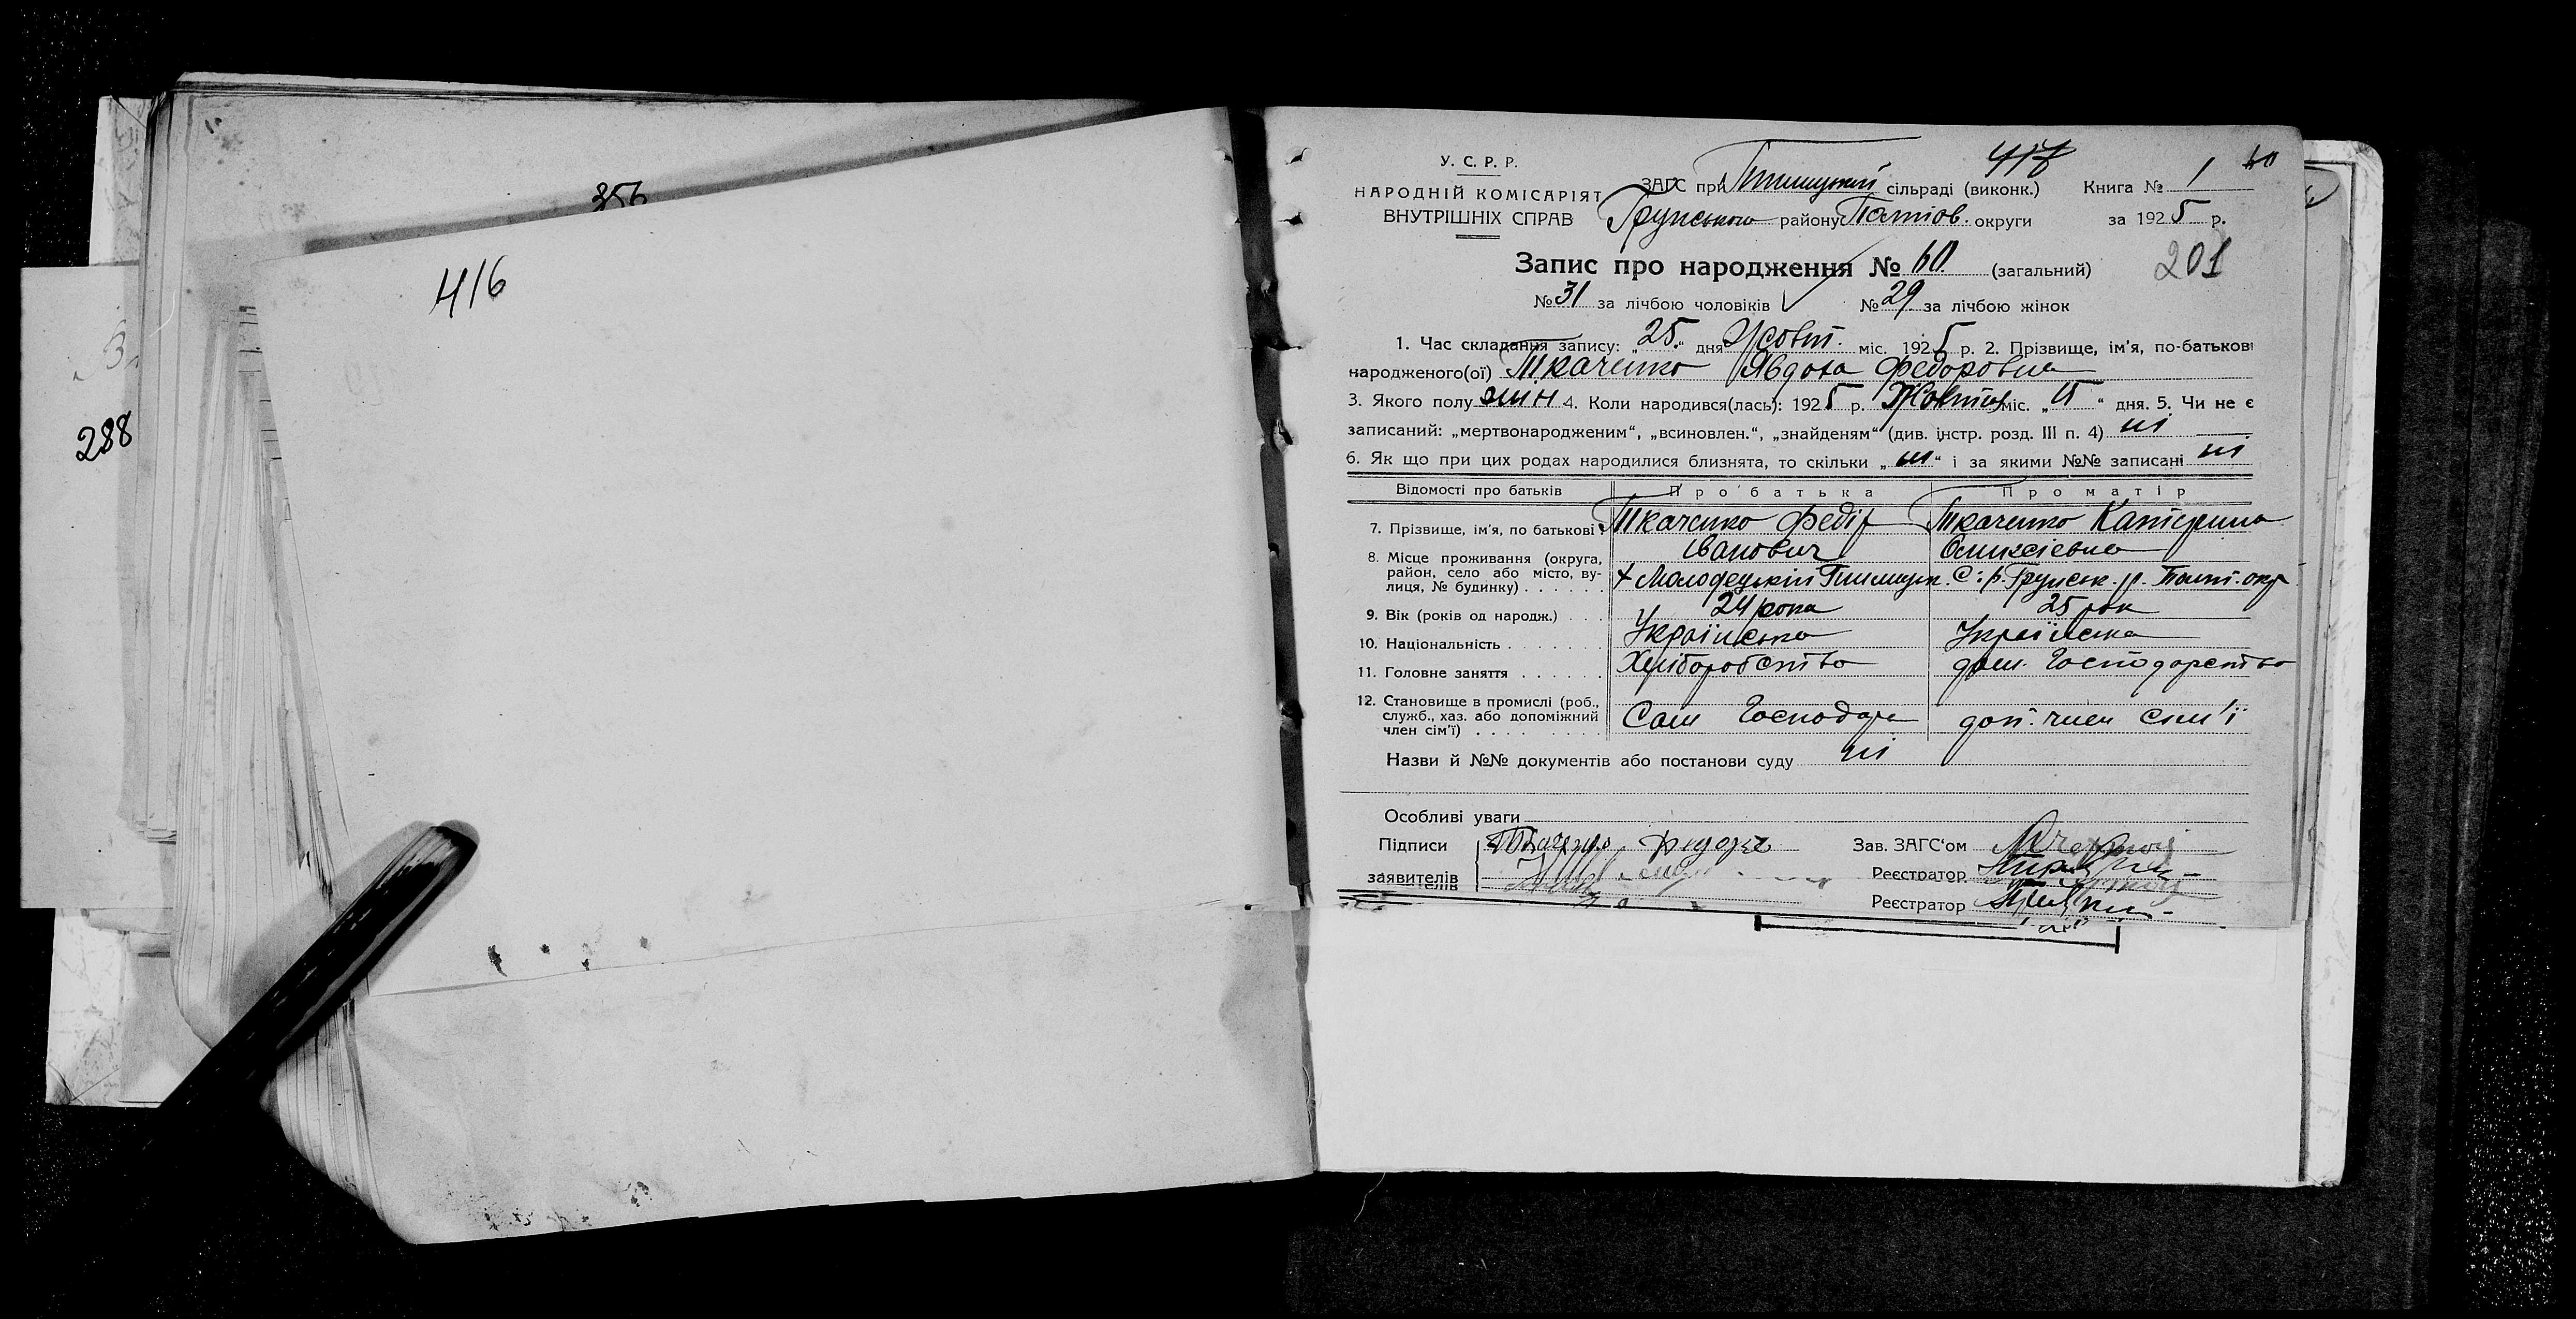 356
416
288
417
У. С. Р. Р.
НАРОДНІЙ КОМІСАРІЯТ
ВНУТРІШНІХ СПРАВ
ЗАГС при сільраді (виконк.) Книга № 1 60
Грунського району Полтов. округи за 1925 р.
Запис про народження № 60 (загальний) 201
№ 31 за лічбою чоловіків № 29 за лічбою жінок
1. Час складання запису: „25“ дня Жовт. міс. 1925 р. 2. Прізвище, ім'я, по-батькові
народженого(ої) Ткаченко Явдоха Федоровна
3. Якого полу жін 4. Коли народився(лась): 1925 р. Жовтня міс. „ “ дня. 5. Чи не є
записаний: „мертвонародженим“, „всиновлен.“, „знайденям“ (див. інстр. розд. III п. 4) ні
6. Як що при цих родах народилися близнята, то скільки „ні“ і за якими №№ записані ні
Відомості про батьків Про батька Про матір
7. Прізвище, ім'я, по батькові Ткаченко Федір Ткаченко Катерина
Іванович Оликсієвна
8. Місце проживання (округа,
район, село або місто, ву-
лиця, № будинку) х Молодецький С.р. Грунськ. р. Полт. окр
9. Вік (років од народж.) 24 рока 25 рок
10. Національність Українська Українська
11. Головне заняття Хліборобство дом. Господарство
12. Становище в промислі (роб.,
служб., хаз. або допоміжний
член сім'ї) Сам Господарь доп. член сім'ї
Назви й №№ документів або постанови суду ні
Особливі уваги
Підписи Зав. ЗАГС'ом
заявителів Реєстратор
Реєстратор